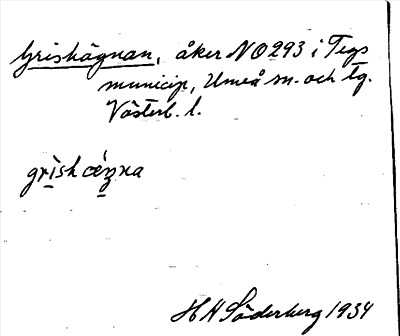 Grishägnan, åker NO293 i Tegs
municip, Umeå sn. och tg.
Västerb. l.
grìshæ̀gna
H H Söderberg 1934